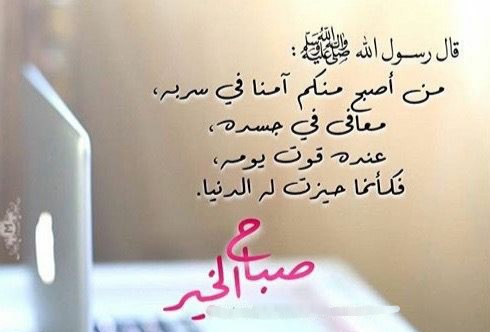 قال رسول الله ﷺ :
من أصبح منكم آمنا في سربه،
معافى في جسده،
عنده قوت يومه،
فكأنما حيزت له الدنيا.
صباح
الخير